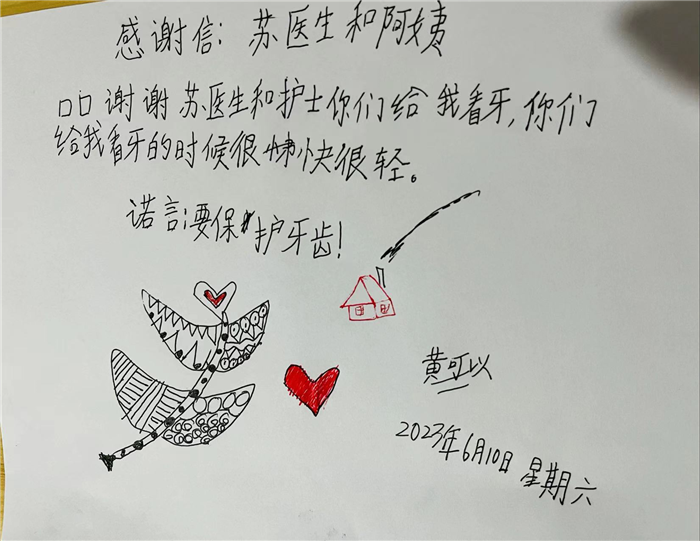 感谢信:苏医生和阿姨
口口谢谢苏医生和护士你们给我看牙,你们
给我看牙的时候很快很轻。
诺言:要保护牙齿!
黄可以
2023年6月10日 星期六